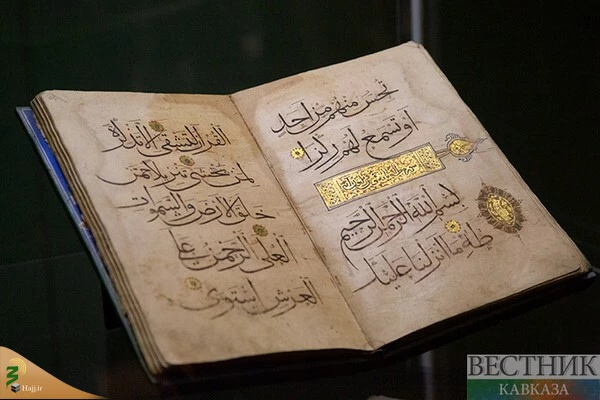 تحس منهم من احد
او تسمع لهم ركزا
بسم الله الرحمن الرحيم
طه ما انزلنا عليك
القرآن لتشقى الا تذكرة
لمن يخشى تنزيلا ممن
خلق الارض والسموات
العلى الرحمن على
العرش استوى
Hajj.ir
ВЕСТНИК
КАВКАЗА